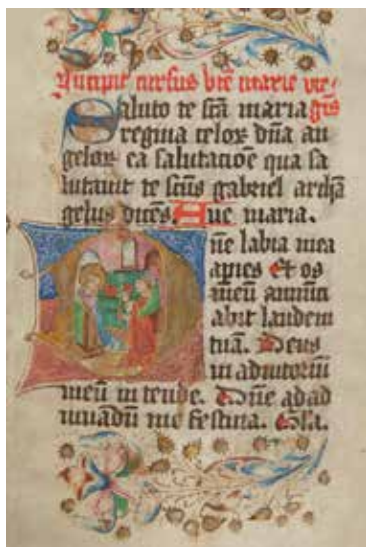 Incipit cursus bte marie vir/
Saluto te sca maria gis
regina celoꝝ dna an
geloꝝ ea salutacoe qua sa
lutauit te scus gabriel archa
gelus dices. Aue maria.
Dne labia mea
apies Et os
meu annuci
abit laudem
tuā. Deus
in adiutoriu
meu in tende. Dne ad ad
iuuādū me festina. Gla.